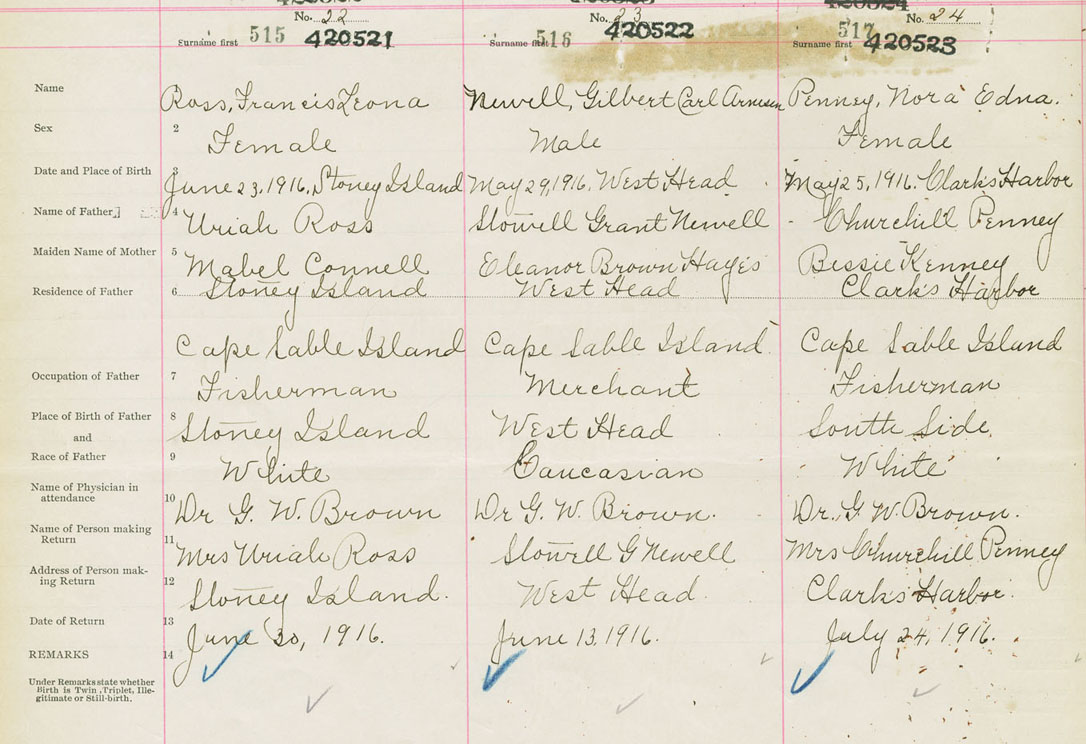 No. 22 No. 23 No. 24
Surname first 515 420521 Surname first 516 420522 Surname first 517 420523
Name Ross, Francis Leona Newell, Gilbert Carl Arnesen Penney, Nora Edna.
Sex 2 Female Male Female
Date and Place of Birth 3 June 23, 1916, Stoney Island May 29, 1916, West Head May 25, 1916. Clark's Harbor
Name of Father 4 Uriah Ross Stowell Grant Newell Churchill Penney
Maiden Name of Mother 5 Mabel Connell Eleanor Brown Hayes Bessie Kenney
Residence of Father 6 Stoney Island West Head Clark's Harbor
Cape Sable Island Cape Sable Island Cape Sable Island
Occupation of Father 7 Fisherman Merchant Fisherman
Place of Birth of Father 8 Stoney Island West Head South Side
and
Race of Father 9 White Caucasian White
Name of Physician in
attendance 10 Dr G. W. Brown Dr G. W. Brown. Dr. G. W. Brown.
Name of Person making
Return 11 Mrs Uriah Ross Stowell G Newell Mrs Churchill Penney
Address of Person mak-
ing Return 12 Stoney Island. West Head. Clark's Harbor.
Date of Return 13 June 30, 1916. June 13, 1916. July 24, 1916.
REMARKS 14
Under Remarks state whether
Birth is Twin, Triplet, Ille-
gitimate or Still-birth.